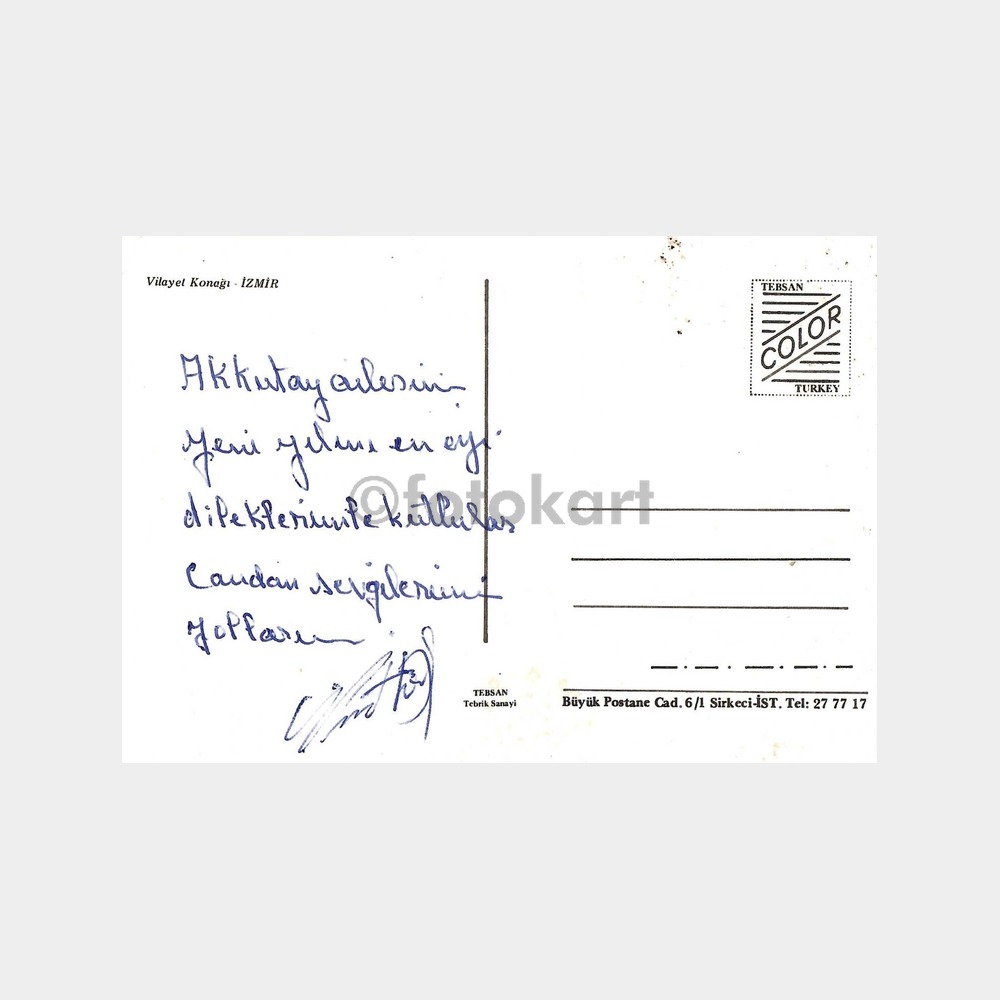 Vilayet Konağı - İZMİR
TEBSAN
COLOR
TURKEY
Akkutay ailesinin
yeni yılını en iyi
dileklerimle kutlular
Candan sevgilerimi
yollarım
©fotokart
TEBSAN
Tebrik Sanayi
Büyük Postane Cad. 6/1 Sirkeci-İST. Tel: 27 77 17